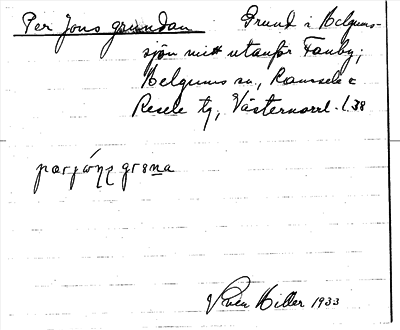 Per Jons grundan Grund i Belgums-
sjön mitt utanför Fanby;
Belgums sn., Ramsele o
Resele tg, Västernorrl. l. 38
Sven Hiller 1933